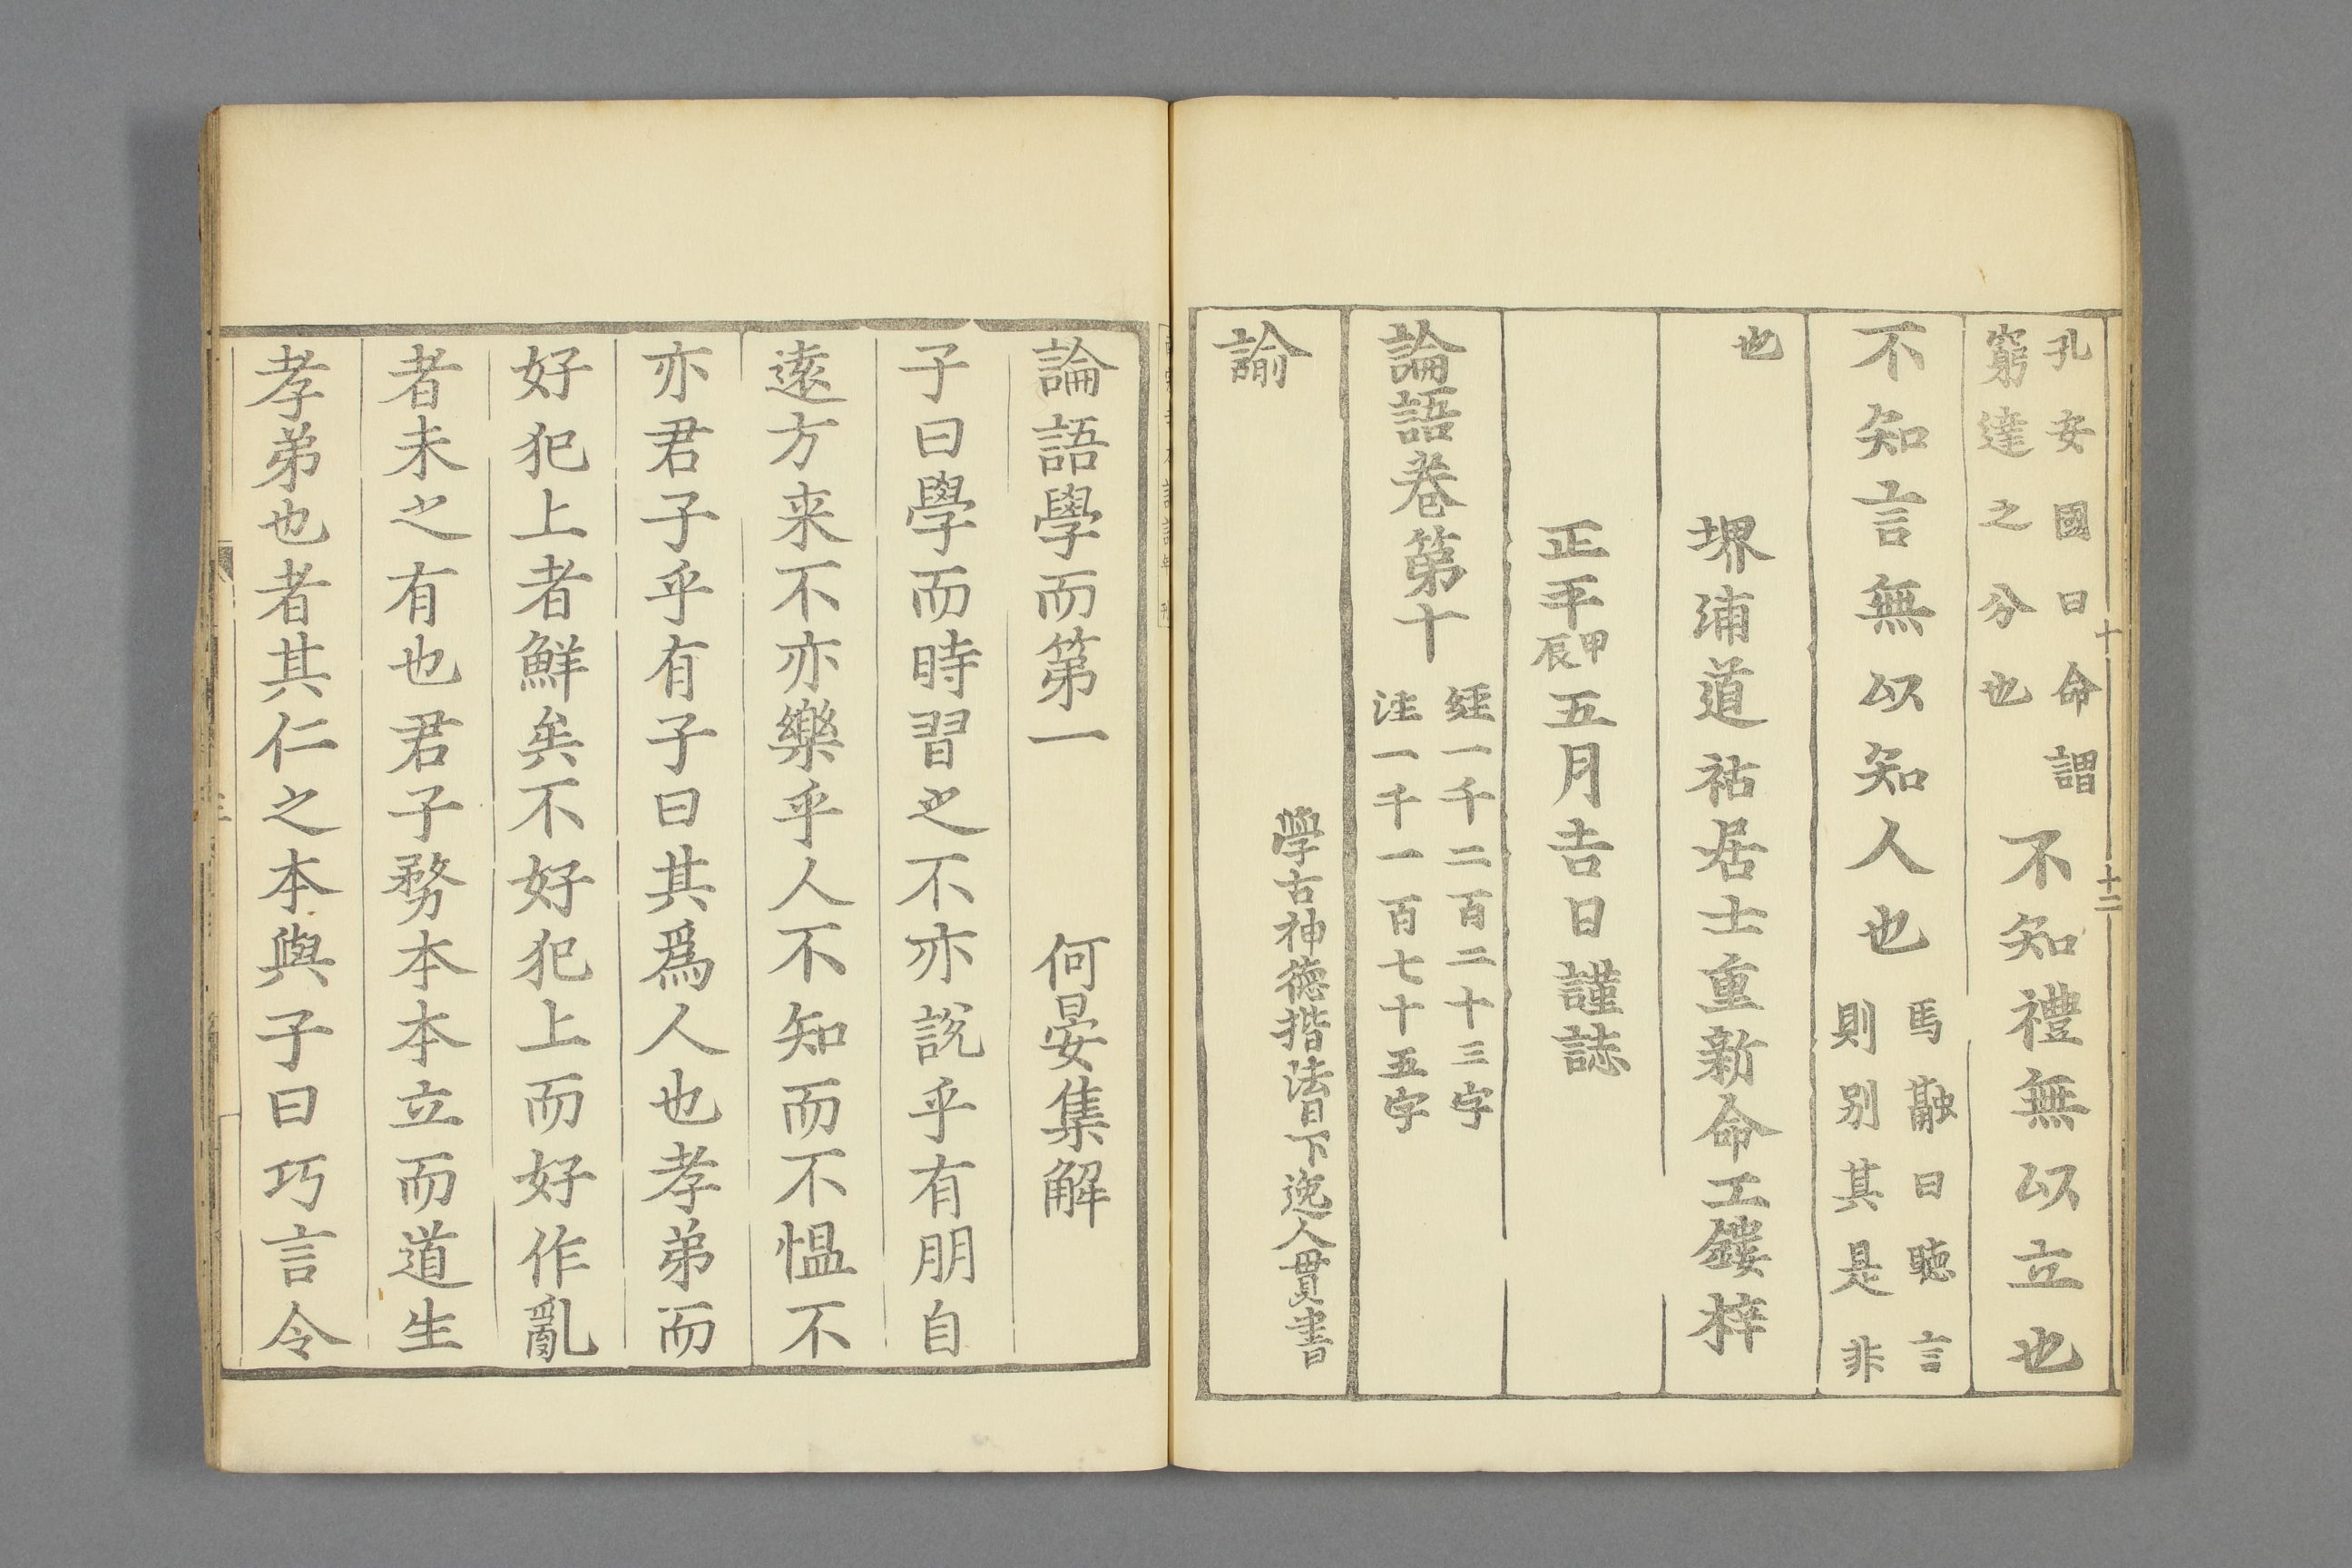 孔安國曰命謂
窮達之分也
不知禮無以立也
不知言無以知人也
馬融曰聽言
則别其是非
也
堺浦道祐居士重新命工鏤梓
正平甲辰五月吉日謹誌
論語卷第十
經一千二百二十三字
注一千一百七十五字
學古神德揩法日下逸人貫書
諭
十
十二
論語學而第一 何晏集解
子曰學而時習之不亦説乎有朋自
逺方来不亦樂乎人不知而不愠不
亦君子乎有子曰其爲人也孝弟而
好犯上者鮮矣不好犯上而好作亂
者未之有也君子務本本立而道生
孝弟也者其仁之本與子曰巧言令